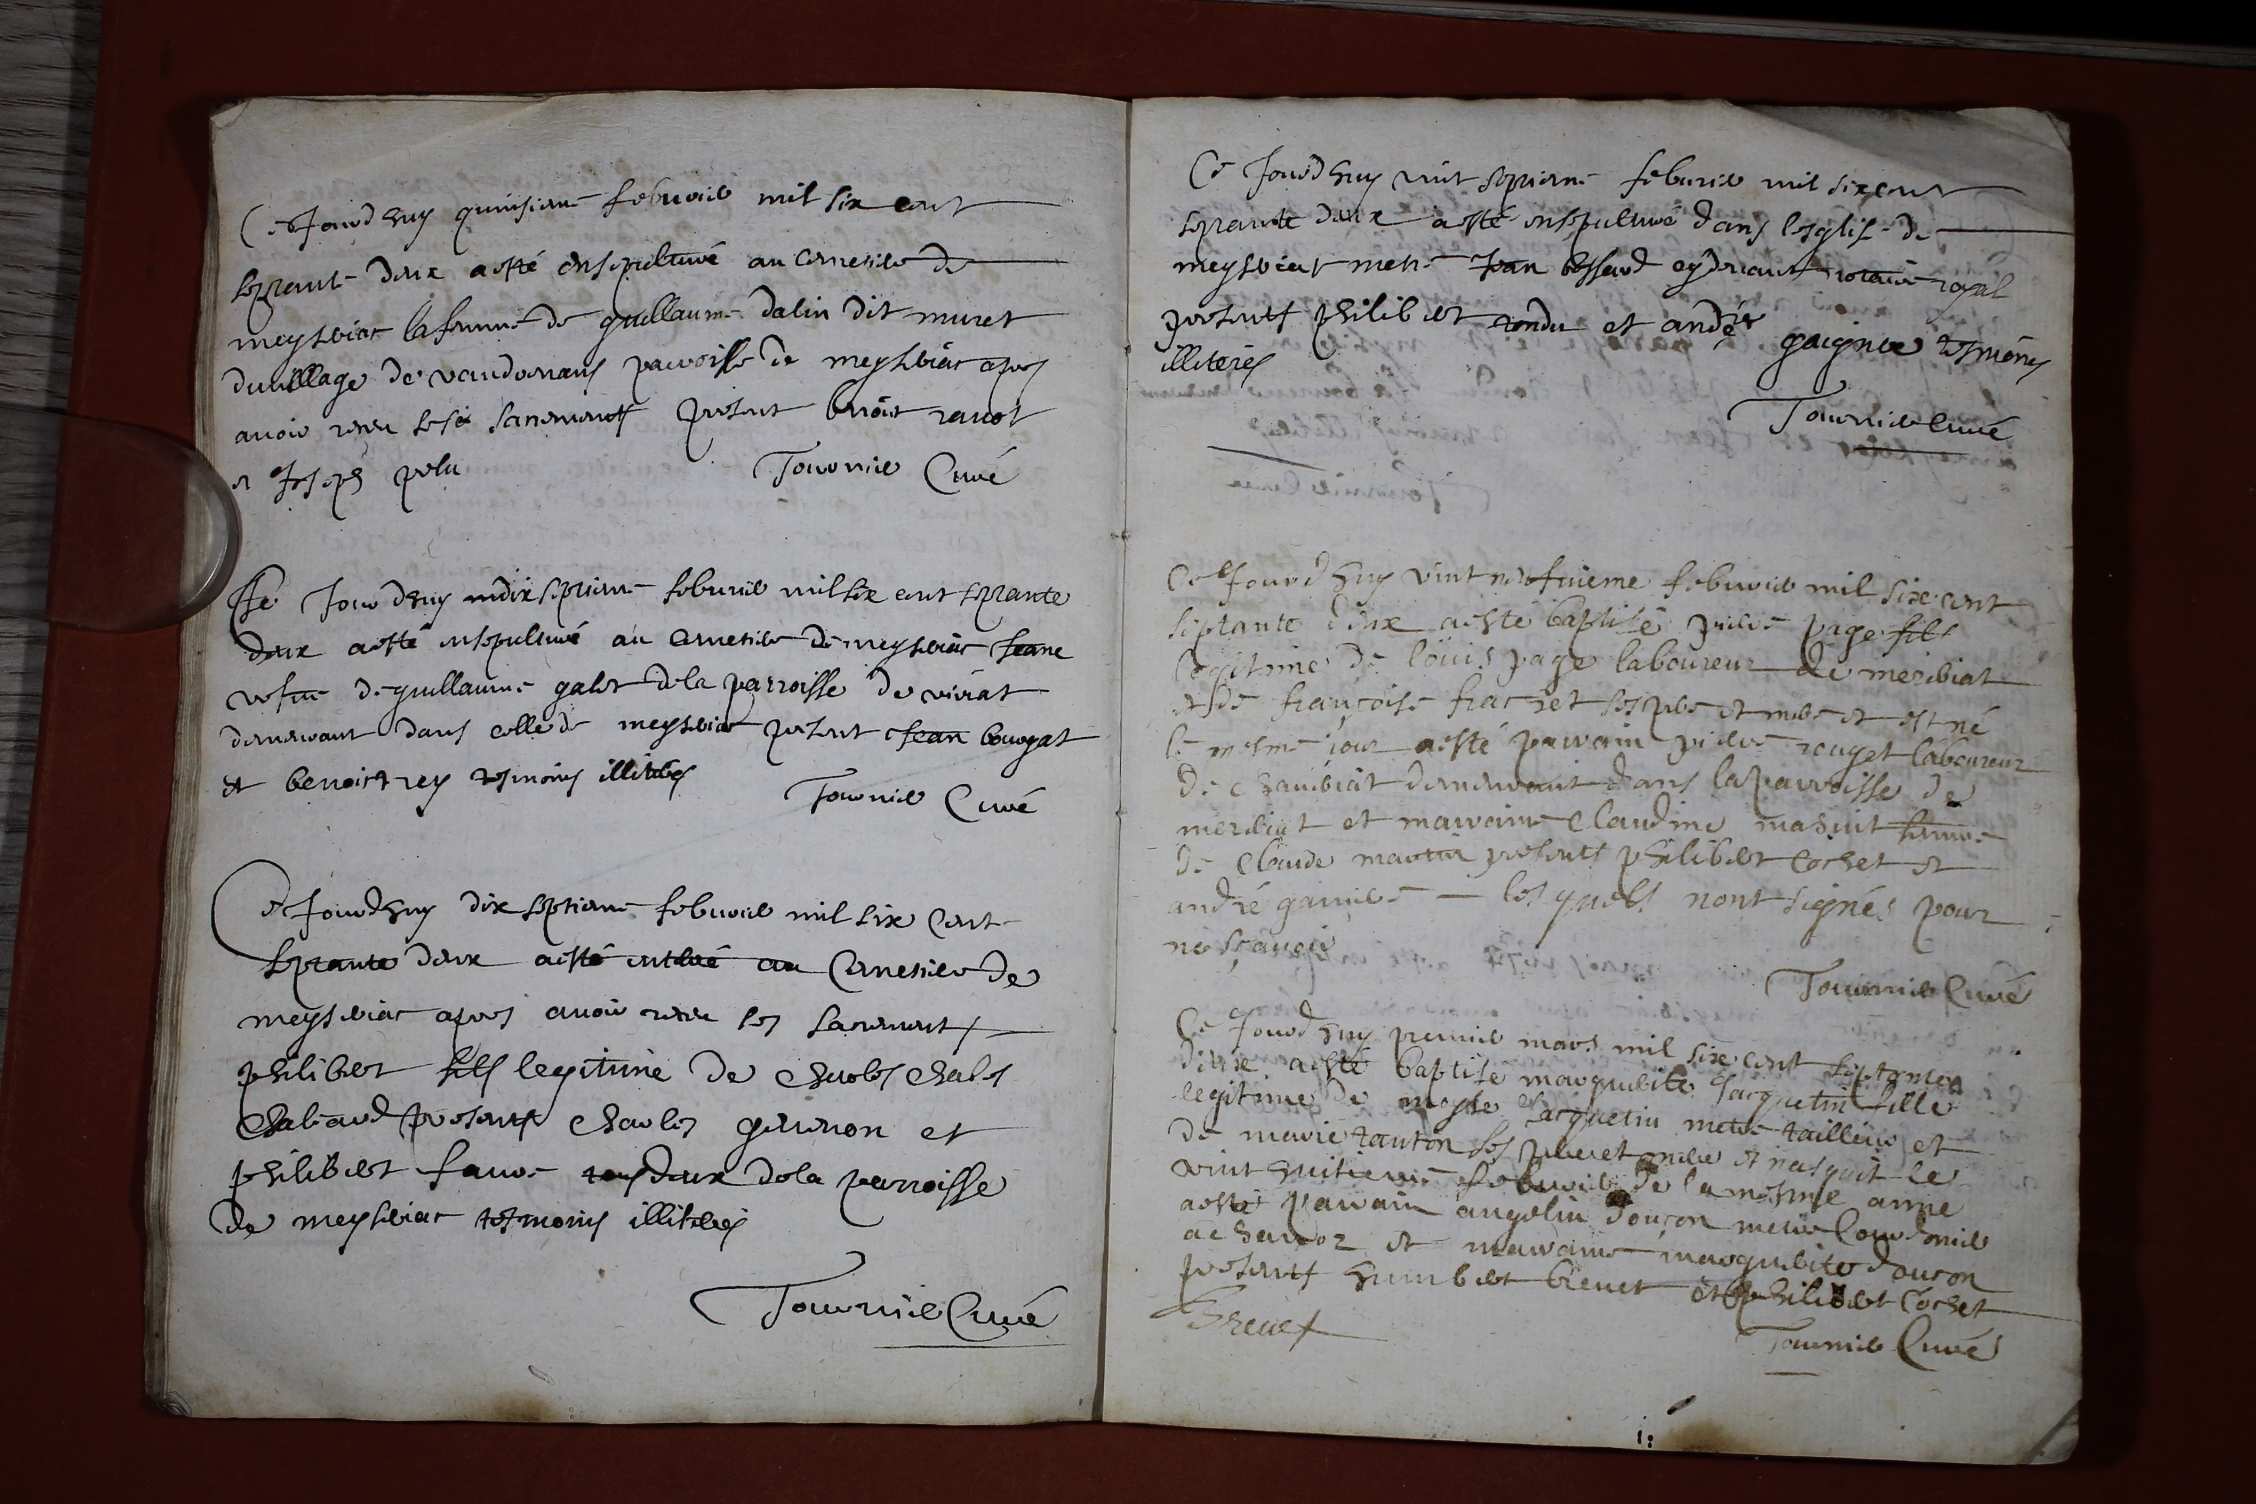 Ce Jourd huy quinsieme febvrier mil six cent
septante deux a esté ensepulturé au cemetiere de
meyseriat la femme de guillaume dalin dit muret
du villlage de vandeenans parroisse de meyseriat apres
avoir receu ses sacrements present benoit ravot
et Joseph
Tournier Curé
Ce Jourd huy dix septieme febvrier mil six cent septante
deux a esté ensepulturé au cemetiere de meyseriat Jeane
vefve de guillaume galet de la parroisse de viriat
demeurant dans celle de meyseriat present Jean bourgat
et benoist rey tesmoins illiterés
Tournier Curé
Ce Jourd huy dix septieme febvrier mil six cent
septante deux a esté enterré au Cemetiere de
meyseriat apres avoir receu les sacrements
philibert fils legitime de charles chales
chaland presents charles et
philibert favre tous deux de la parroisse
de meyseriat tesmoins illiterés
Tournier Curé
Ce Jourd huy vint septieme febvrier mil six cent
septante deux a esté ensepulturé dans lesglise de
meyseriat metre Jean bossard cy devant notaire royal
presents philibert rondu et andre gaignere tesmoins
illiterés
Tournier Curé
Ce Jourd huy vint neufvieme febvrier mil six cent
septante deux a esté baptisé pierre page fils
legitime de louis page laboureur de meseriat
et de françoise fracret ses pere et mere et est né
le mesme jour a esté parrain pierre rouget laboureur
de chambiat demeurant dans la parroisse de
meseriat et marraine Claudine masuit femme
de Claude presents philibert cochet et
andré garnier les quels nont signés pour
ne sçavoir
Tournier Curé
Ce Jourd huy premier mars mil six cent septante
deux a esté baptisé marguerite Jacquetin fille
legitime de moyse Jacquetin metre tailleur et
de marie tanton ses pere et mere et nasquit le
vint huitieme febvrier de la mesme anne
a esté parrain angelin douçon metre Courdonier
a et marraine marguerite douçon
presents humbert brevet et philibert cochet
Brevet
Tournier Curé